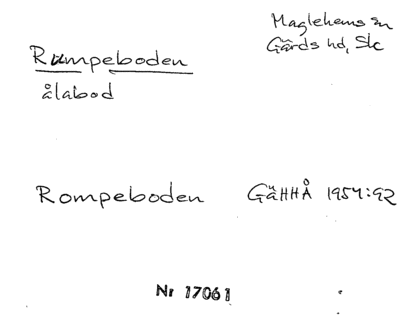 Maglehems sn
Gärds hd, Sk
Rumpeboden
ålabod
Rompeboden GäHHÅ 1954:92
Nr 17061